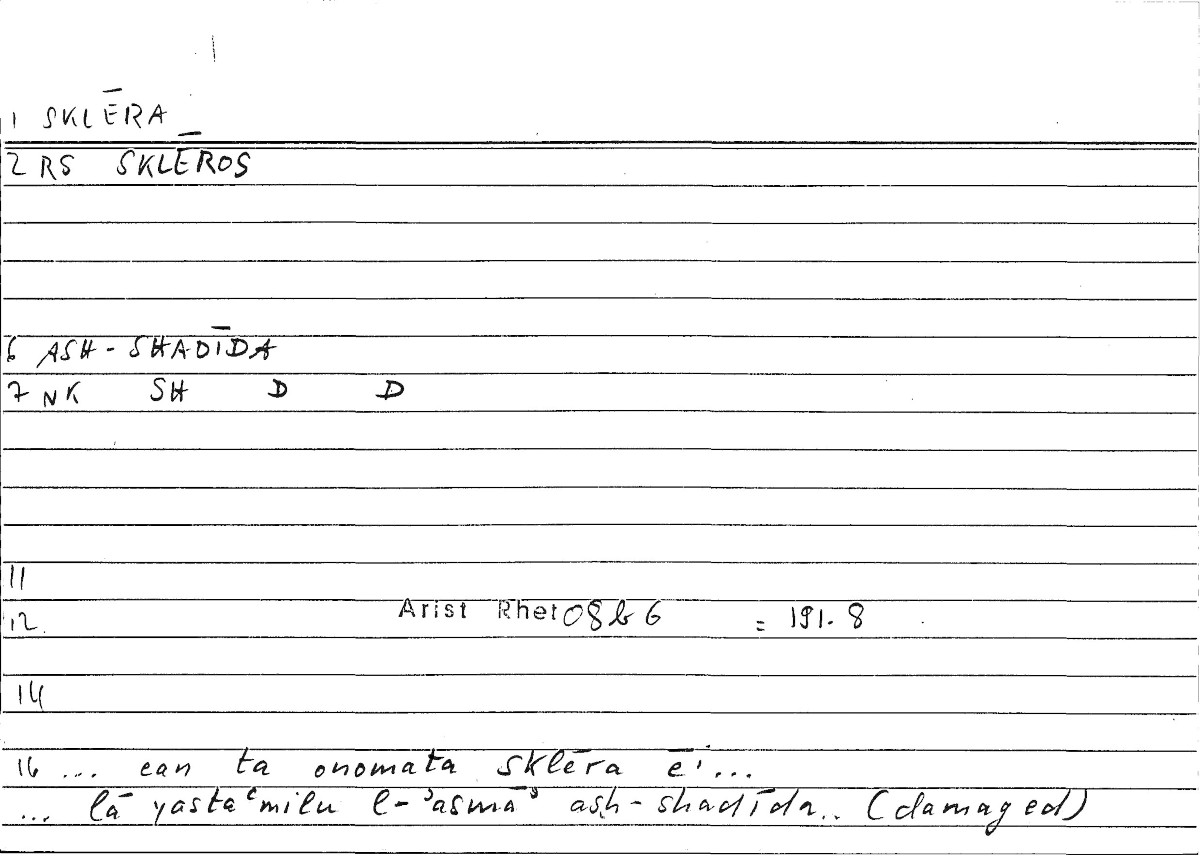 1 SKLĒRA
2 RS SKLĒROS
6 ASH-SHADĪDA
7 NK SH D D
11
12. Arist Rhet 08b6 = 191.8
14
16 ... ean ta onomata sklēra ēi...
... lā yastaʿmilu l-ʾasmāʾ ash-shadīda.. (damaged)